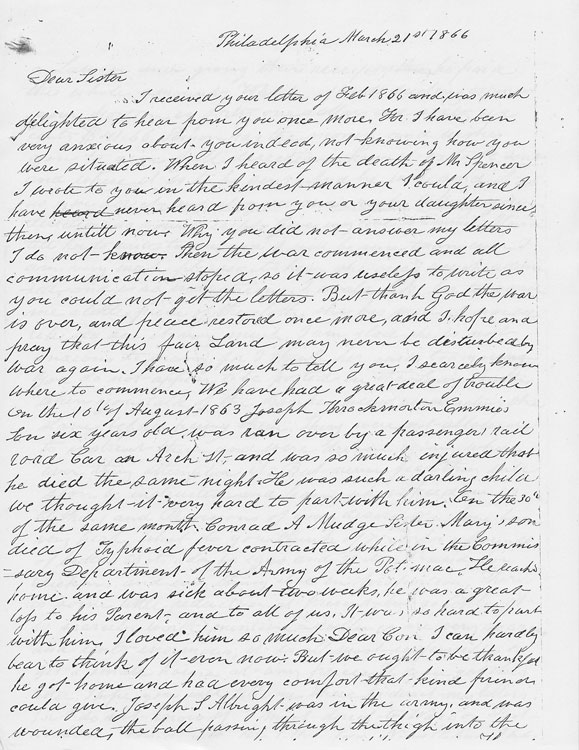 Philadelphia March 21st 1866
Dear Sister
I received your letter of Feb 1866 and was much
delighted to hear from you once more. For I have been
very anxious about you indeed, not knowing how you
were situated. When I heard of the death of Mr Spencer
I wrote to you in the kindest manner I could, and I
have heard never heard from you or your daughter since
then, untill now. Why you did not answer my letters
I do not know. Then the war commenced and all
communication stoped, so it was useless to write as
you could not get the letters. But thank God the war
is over, and peace restored once more, and I hope and
pray that this fair Land may never be disturbed by
war again. I have so much to tell you, I scarcely know
where to commence, We have had a great deal of trouble
On the 10th of August 1863 Joseph Throckmorton Emmies
Son six years old, was ran over by a passenger rail
road Car on Arch St, and was so much injured that
he died the same night. He was such a darling child
we thought it very hard to part with him. On the 30th
of the same month. Conrad A Mudge Sister Mary's son
died of Typhoid fever contracted while in the Commis
=sary Department of the Army of the Potimac. He reached
home and was sick about two weeks, he was a great
loss to his Parent, and to all of us. It was so hard to part
with him, I loved him so much Dear Con I can hardly
bear to think of it even now. But we ought to be thankful
he got home and had every comfort that kind friends
could give. Joseph S Albright was in the army, and was
wounded, the ball passing through the thigh into the